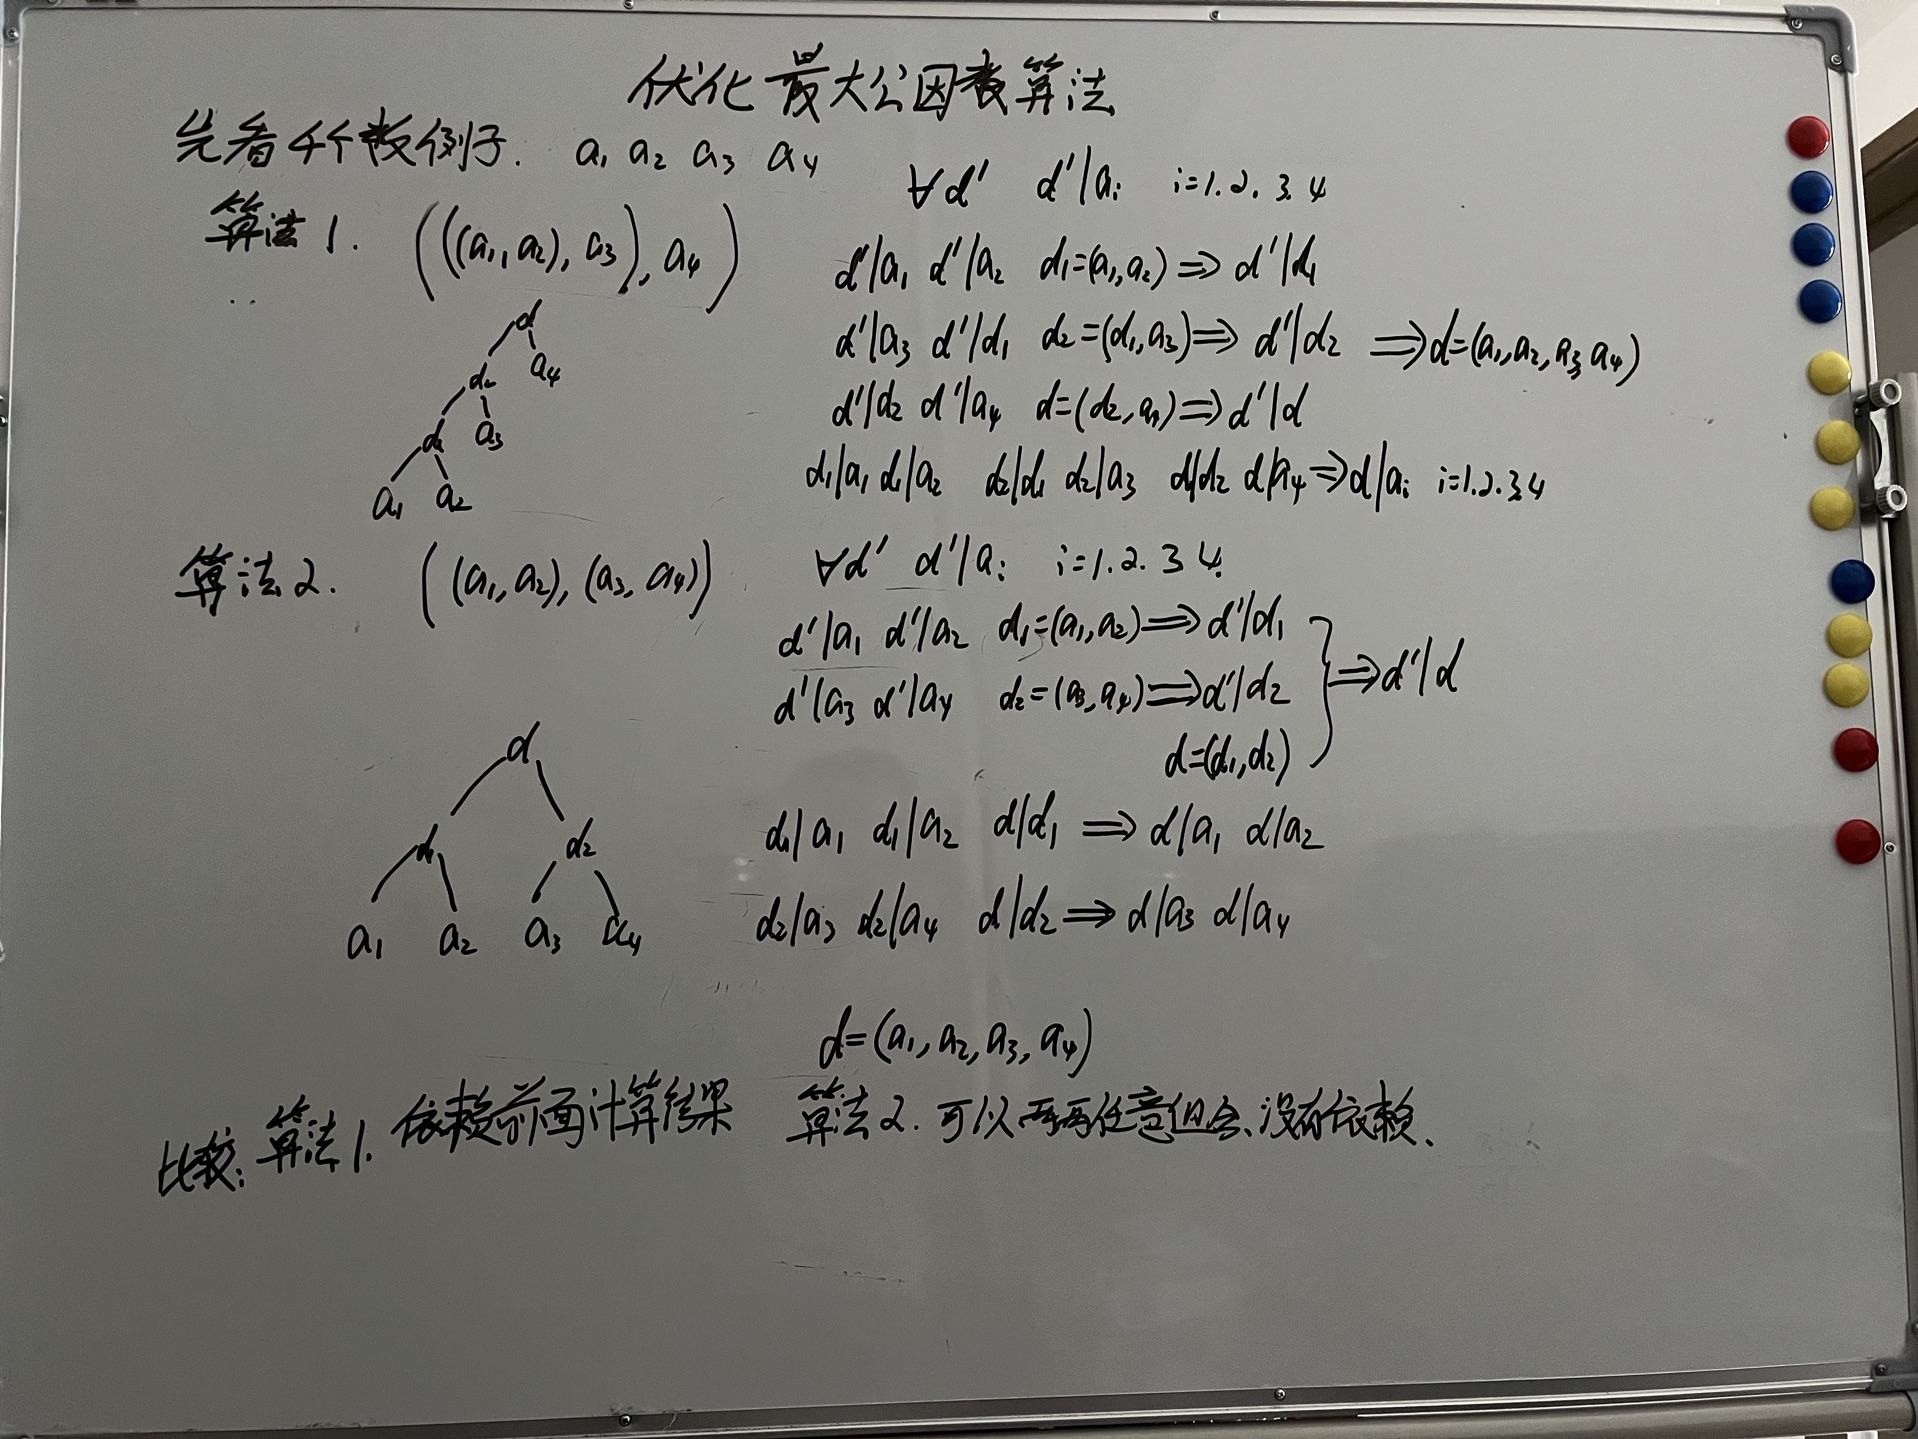 优化最大公因数算法
先看4个数例子. a₁ a₂ a₃ a₄
算法1. (((a₁,a₂),a₃),a₄)
d
d₂ a₄
d₁ a₃
a₁ a₂
∀d' d'|aᵢ i=1.2.3.4
d'|a₁ d'|a₂ d₁=(a₁,a₂)⇒d'|d₁
d'|a₃ d'|d₁ d₂=(d₁,a₃)⇒d'|d₂ ⇒d=(a₁,a₂,a₃,a₄)
d'|d₂ d'|a₄ d=(d₂,a₄)⇒d'|d
d₁|a₁ d₁|a₂ d₂|d₁ d₂|a₃ d|d₂ d|a₄⇒d|aᵢ i=1.2.3.4
算法2. ((a₁,a₂),(a₃,a₄))
d
d₁ d₂
a₁ a₂ a₃ a₄
∀d' d'|aᵢ i=1.2.3 4.
d'|a₁ d'|a₂ d₁=(a₁,a₂)⇒d'|d₁
d'|a₃ d'|a₄ d₂=(a₃,a₄)⇒d'|d₂ ⇒d'|d
d=(d₁,d₂)
d₁|a₁ d₁|a₂ d|d₁⇒d|a₁ d|a₂
d₂|a₃ d₂|a₄ d|d₂⇒d|a₃ d|a₄
d=(a₁,a₂,a₃,a₄)
比较:算法1.依赖前面计算结果 算法2.可以两两任意组合、没有依赖、